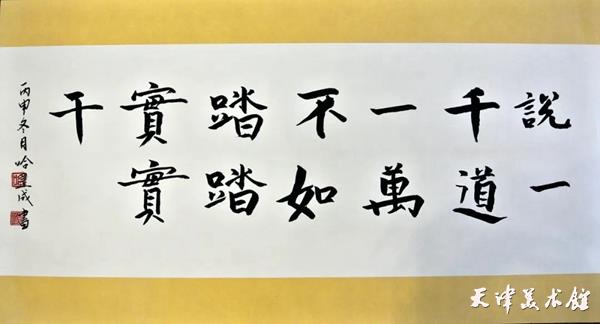 說一
千道
一萬
不如
踏踏
實實
干
丙申冬日哈成書
天津美术馆